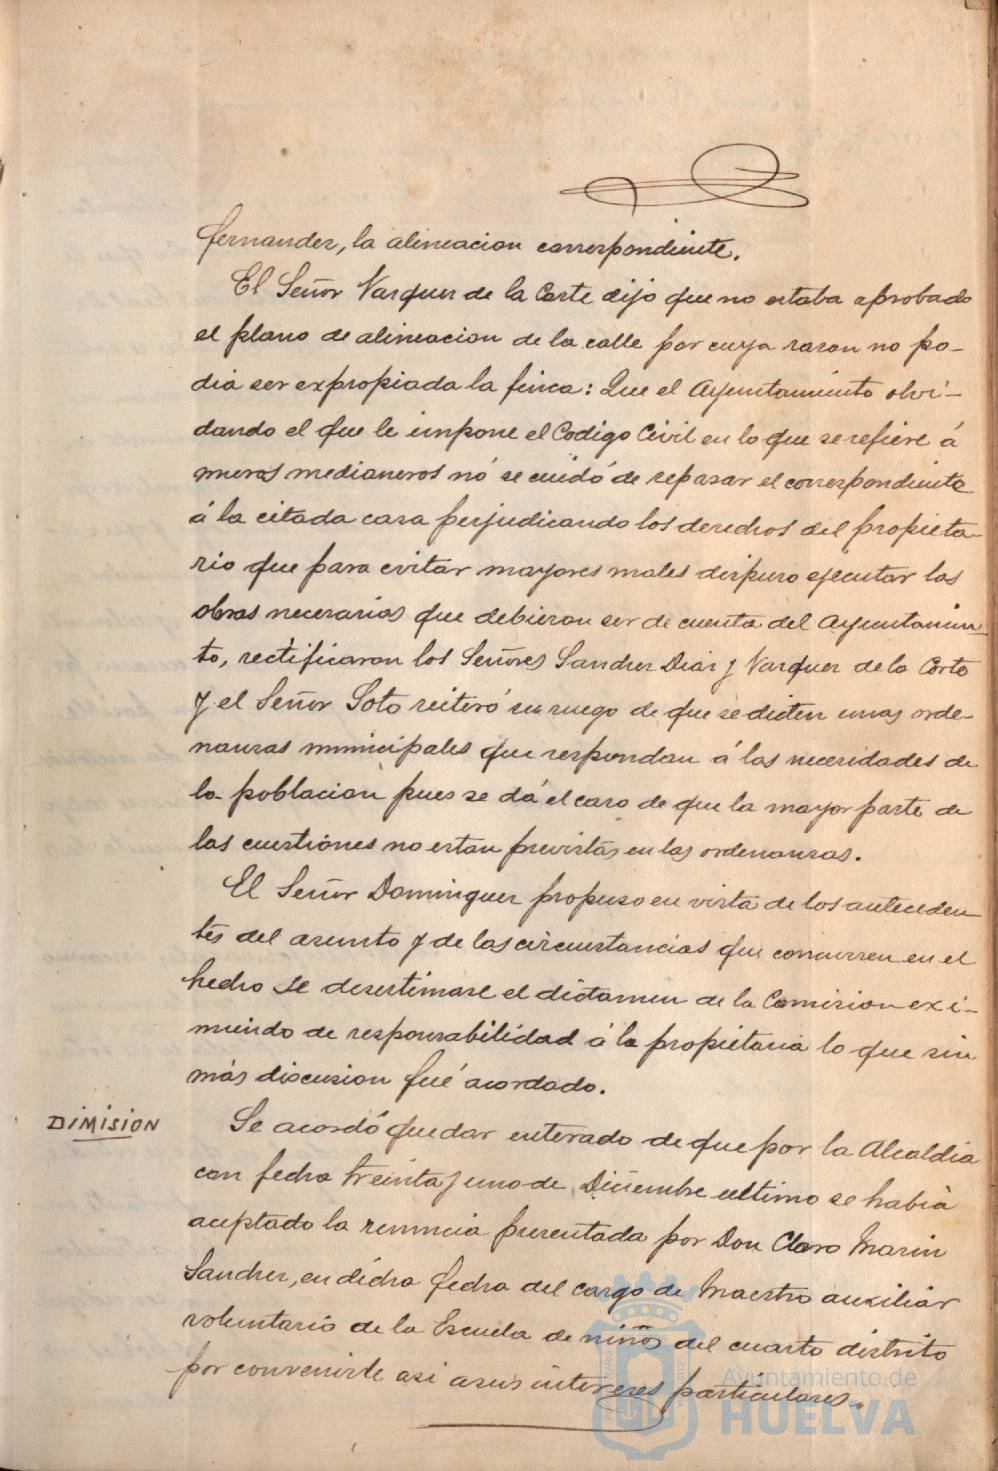 Fernandez, la alineacion correspondiente.
El Señor Vazquez de la Corte dijo que no estaba aprobado
el plano de alineacion de la calle por cuya razon no po-
dia ser expropiada la finca: Que el Ayuntamiento olvi-
dando el que le impone el Codigo Civil en lo que se refiere á
muros medianeros nó se cuidó de repasar el correspondiente
á la citada casa perjudicando los derechos del propieta-
rio que para evitar mayores males dispuso ejecutar las
obras necesarias que debieron ser de cuenta del Ayuntamien-
to, rectificaron los Señores Sanchez Diaz y Vazquez de la Corte
y el Señor Soto reiteró su ruego de que se dicten unas orde-
nanzas municipales que respondan á las necesidades de
la poblacion pues se dá el caso de que la mayor parte de
las cuestiones no estan previstas en las ordenanzas.
El Señor Dominguez propuso en vista de los anteceden
tes del asunto y de las circunstancias que concurren en el
hecho se desestimase el dictamen de la Comision exi-
miendo de responsabilidad á la propietaria lo que sin
más discusion fué acordado.
DIMISION
Se acordó quedar enterado de que por la Alcaldia
con fecha treinta y uno de Diciembre ultimo se habia
aceptado la renuncia presentada por Don Claro Marin
Sanchez, en dicha fecha del cargo de Maestro auxiliar
voluntario de la Escuela de niños del cuarto distrito
por convenirle asi a sus intereses particulares.
Ayuntamiento de
HUELVA